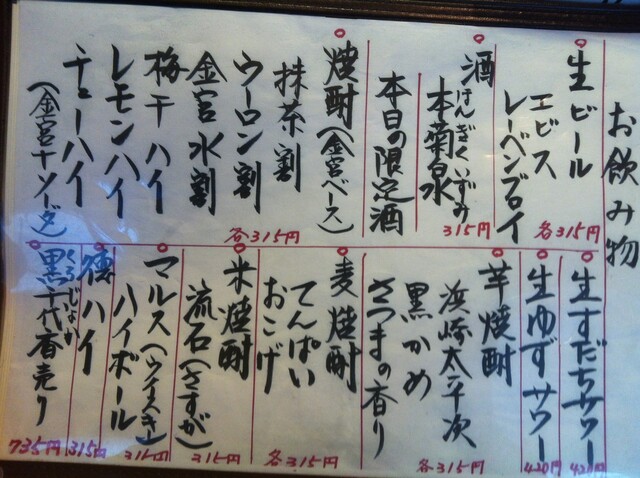 お飲み物
生ビール
エビス
レーベンブロイ
各315円
酒
本菊泉
けんぎくいずみ
315円
本日の限定酒
焼酎(金宮ベース)
抹茶割
ウーロン割
金宮水割
梅干ハイ
レモンハイ
チューハイ
(金宮+ソーダ)
各315円
生すだちサワー
420円
生ゆずサワー
420円
芋焼酎
浜崎太平次
黒かめ
さつまの香り
各315円
麦焼酎
てんぱい
おこげ
各315円
米焼酎
流石(さすが)
315円
マルス(ウイスキー)
ハイボール
315円
ハイ
315円
黒千代香売り
くろじょか
735円